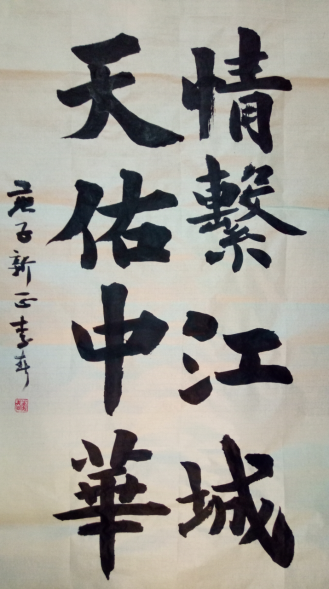 情繫江城
天佑中華
庚子新正李